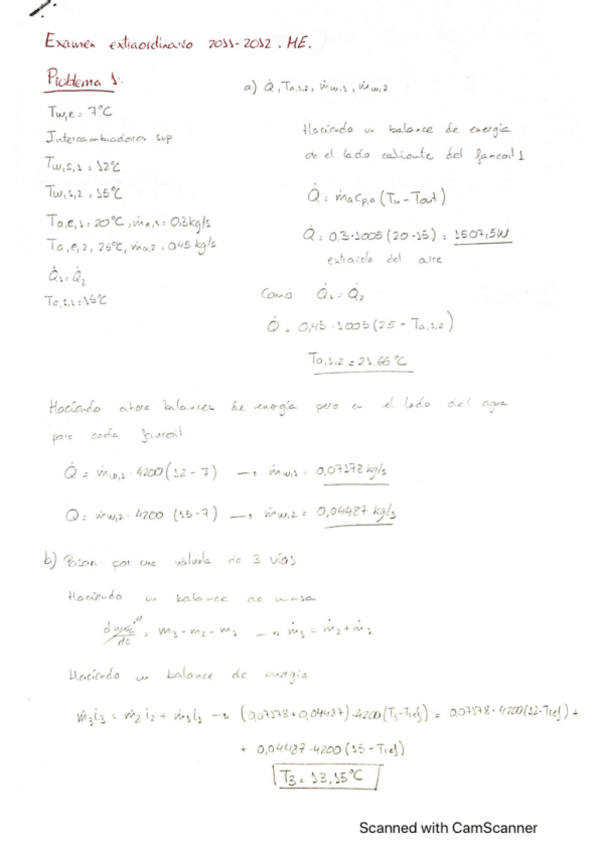 Examen extraordinario 2011-2012. ME.
Problema 1:
a) Q̇, Ta,s,2, ṁw,1, ṁw,2
Tw,e = 7ºC
Intercambiadores sup
Tw,s,1 = 12ºC
Tw,s,2 = 15ºC
Ta,e,1 = 20ºC, ṁa,1 = 0,3 kg/s
Ta,e,2, 25ºC, ṁa,2 = 0,45 kg/s
Q̇1 = Q̇2
Ta,s,1 = 15ºC
Haciendo un balance de energía
en el lado caliente del fancoil 1
Q̇ = ṁa cp,a (Tin - Tout)
Q̇ = 0,3 · 1005 (20 - 15) = 1507,5W
extraido del aire
Como Q̇1 = Q̇2
Q̇ = 0,45 · 1005 (25 - Ta,s,2)
Ta,s,2 = 21.66ºC
Haciendo ahora balances de energía pero en el lado del agua
para cada fancoil
Q̇ = ṁw,1 · 4200 (12 - 7) → ṁw,1 = 0,07178 kg/s
Q̇ = ṁw,2 · 4200 (15 - 7) → ṁw,2 = 0,04487 kg/s
b) Pasan por una válvula de 3 vías
Haciendo un balance de masa
dmvc/dt = ṁ3 - ṁ2 - ṁ1 → ṁ3 = ṁ2 + ṁ1
Haciendo un balance de energía
ṁ3 i3 = ṁ2 i2 + ṁ1 i1 → (0,07178 + 0,04487) · 4200 (T3 - Tref) = 0,07178 · 4200 (12 - Tref) +
+ 0,04487 · 4200 (15 - Tref)
T3 = 13,15ºC
Scanned with CamScanner